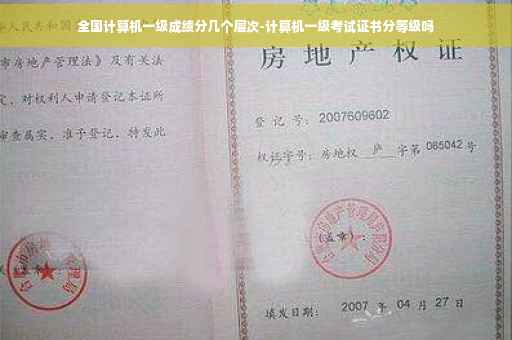 全国计算机一级成绩分几个层次-计算机一级考试证书分等级吗
华人民共和国
市房地产管理法》及有关法
定，对权利人申请登记本证所
审查属实，准予登记，特发此
房地产权证
登记号：2007609602
权证字号：房地权 庐 字第 065042 号
(盖章)：
填发日期：2007 年 04 月 27 日